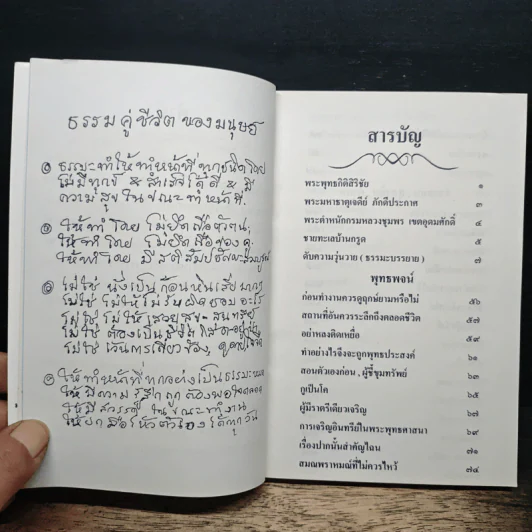 ธรรม คู่ ชีวิต ของมนุษย์
ธรรมะทำให้ทำหน้าที่ ทุกชนิดโดย
ไม่มีทุกข์ & สำเร็จได้ดี & มี
ความสุข ในขณะทำหน้าที่.
ให้ทำ โดย ไม่ยึดถือตัวตน;
ให้ทำ โดย ไม่ยึดถือของกู.
ให้ทำ โดย มีสติสัมปชัญญะสมบูรณ์
ไม่ใช่ นั่งเป็นก้อนหิน
ไม่ใช่ ไม่ให้ไม่รับผิดชอบอะไร
ไม่ใช่ ไม่ให้
ไม่ใช่ ต้องเป็น
ไม่ใช่ เว้นการเกี่ยวข้อง
ให้ ทำหน้าที่ทุกอย่างเป็นธรรมะ
ให้มีความรู้สึกถูกต้องพอใจ
ให้มีสวรรค์ ในขณะทำงาน
ให้ยกมือไหว้ตัวเองได้ทุกวัน
สารบัญ
พระพุทธกิติสิริชัย ๑
พระมหาธาตุเจดีย์ ภักดีประกาศ ๓
พระตำหนักกรมหลวงชุมพร เขตอุดมศักดิ์ ๔
ชายทะเลบ้านกรูด ๕
ดับความวุ่นวาย ( ธรรมะบรรยาย ) ๗
พุทธพจน์
ก่อนทำงานควรดูฤกษ์ยามหรือไม่ ๕๖
สถานที่อันควรระลึกถึงตลอดชีวิต ๕๗
อย่าหลงติดเหยื่อ ๕๙
ทำอย่างไรจึงจะถูกพุทธประสงค์ ๖๑
สอนตัวเองก่อน , ผู้ชี้ขุมทรัพย์ ๖๓
กูเป็นโค ๖๕
ผู้มีราตรีเดียวเจริญ ๖๗
การเจริญอินทรีย์ในพระพุทธศาสนา ๖๙
เรื่องปากนั้นสำคัญไฉน ๗๑
สมณพราหมณ์ที่ไม่ควรไหว้ ๗๔